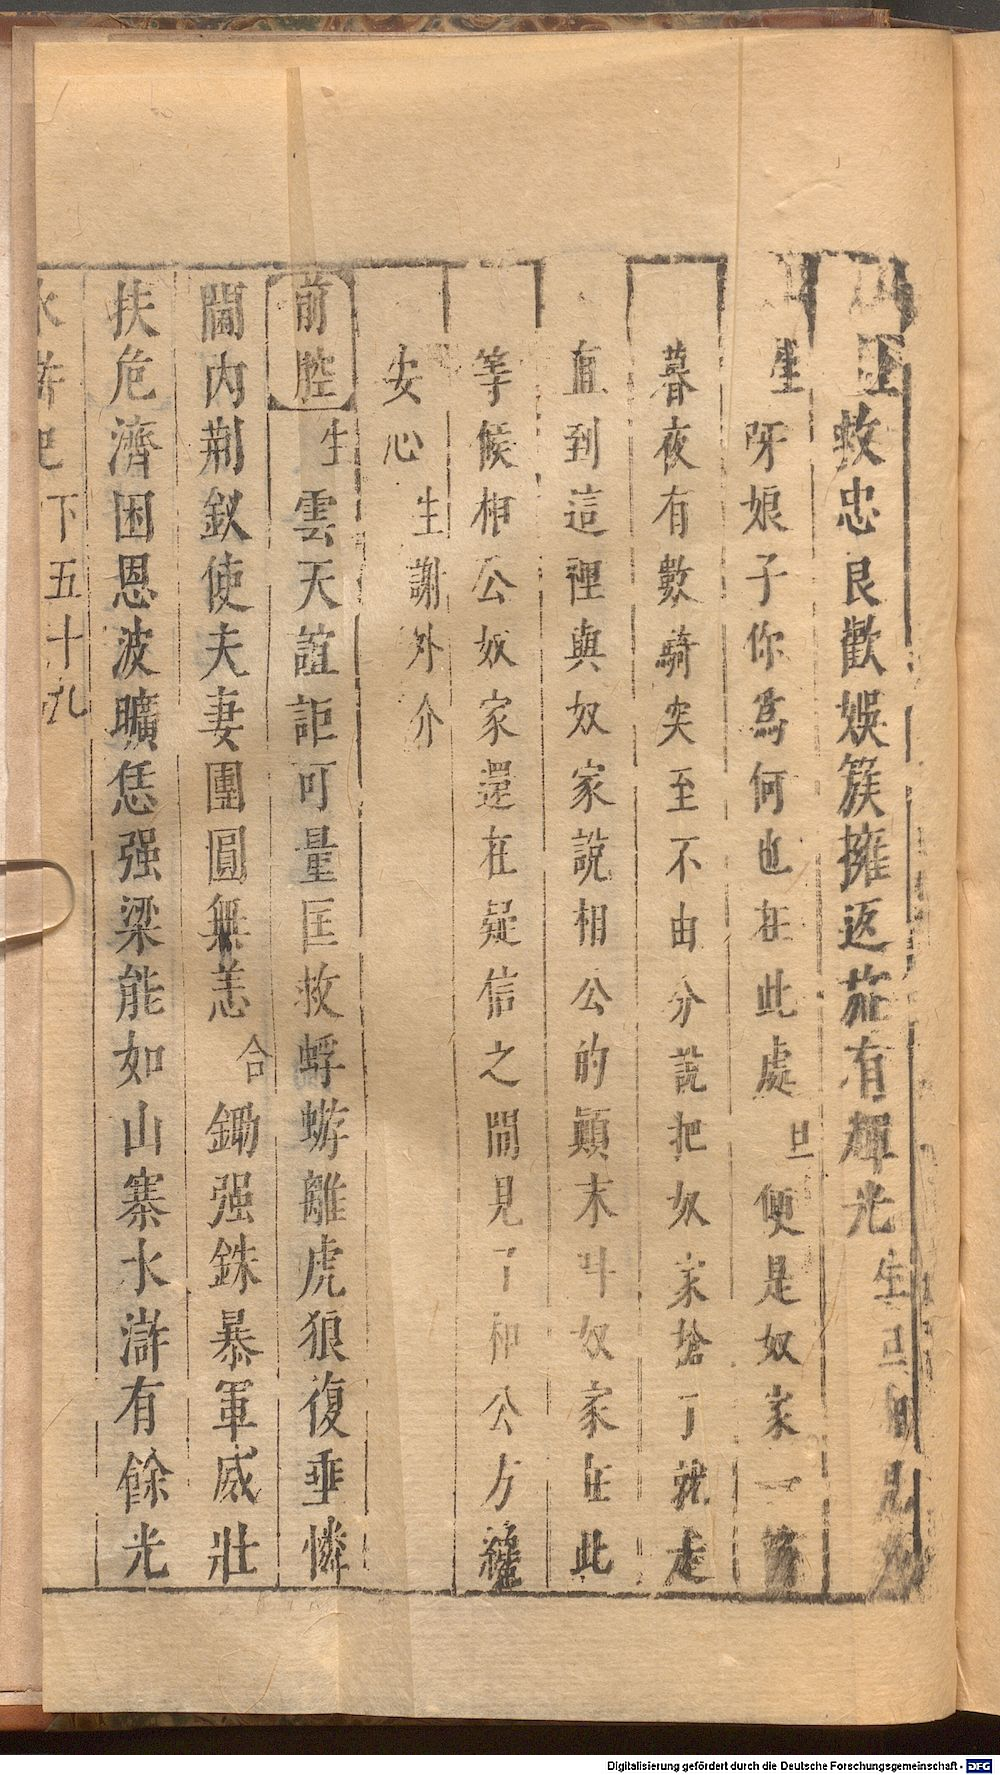 救忠良歡娛簇擁返旌有輝光生
生呀娘子你為何也在此處旦便是奴家一
暮夜有數騎突至不由分說把奴家搶了就走
直到這裡與奴家說相公的顛末叫奴家在此
等候相公奴家還在疑信之間見了相公方纔
安心生謝外介
前腔生雲天誼詎可量匡救蜉蝣離虎狼復垂憐
閫內荆釵使夫妻團圓無恙合鋤强銖暴軍威壯
扶危濟困恩波曠恁强梁能如山寨水滸有餘光
水滸記下五十九
Digitalisierung gefördert durch die Deutsche Forschungsgemeinschaft - DFG